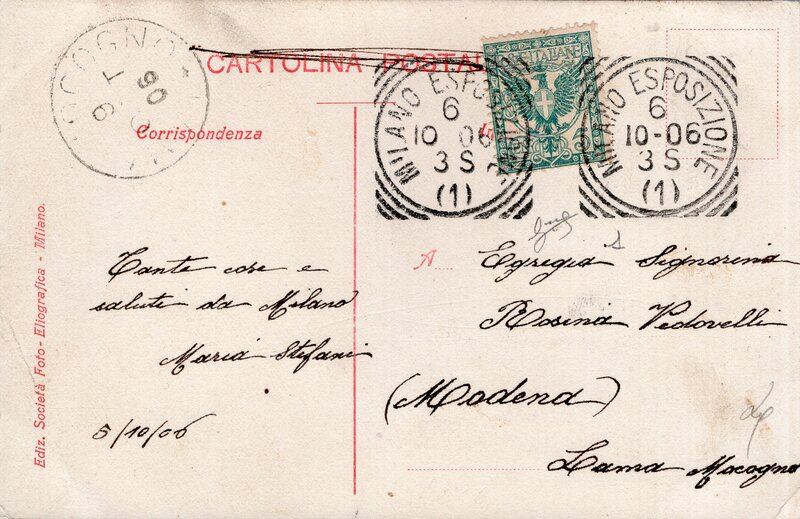 CARTOLINA POSTALE
ITALIANE
MILANO ESPOSIZIONE
6
10-06
3 S
(1)
MILANO ESPOSIZIONE
6
10-06
3 S
(1)
Corrispondenza
Tante cose e
saluti da Milano
Maria Stefani
5/10/06
A
Egregia Signorina
Rosina Vedovelli
(Modena)
Lama Mocogno
Ediz. Società Foto-Eliografica - Milano.